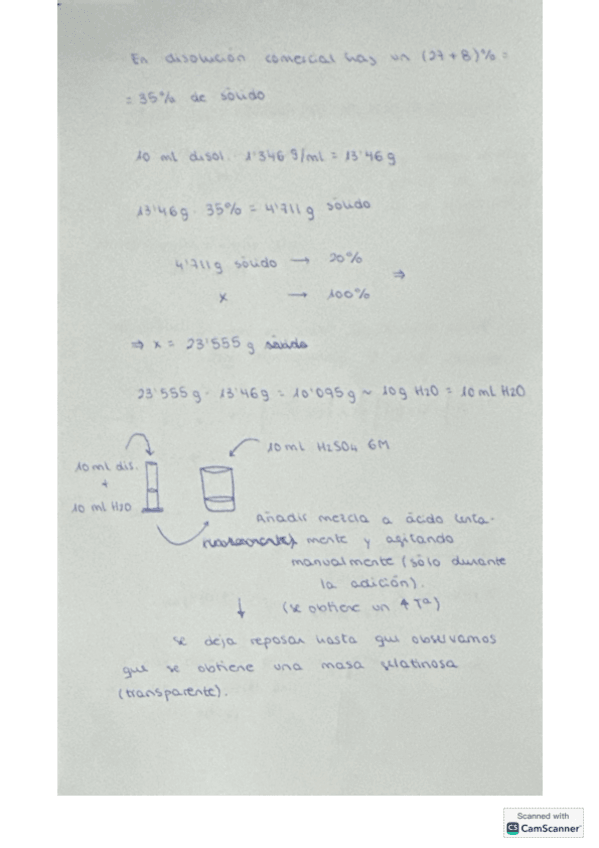 En disolución comercial hay un (27+8)% =
= 35% de sólido
10 ml disol. 1'346 g/ml = 13'46 g
13'46 g · 35% = 4'711 g sólido
4'711 g sólido → 20%
⇒
x → 100%
⇒ x = 23'555 g
23'555 g - 13'46 g = 10'095 g ~ 10 g H2O = 10 mL H2O
10 mL H2SO4 6M
10 ml dis.
+
10 ml H2O
Añadir mezcla a ácido lenta-
mente y agitando
manualmente (sólo durante
la adición).
↓ (se obtiene un ↑ Tª)
se deja reposar hasta que observamos
que se obtiene una masa gelatinosa
(transparente).
Scanned with
CS CamScanner